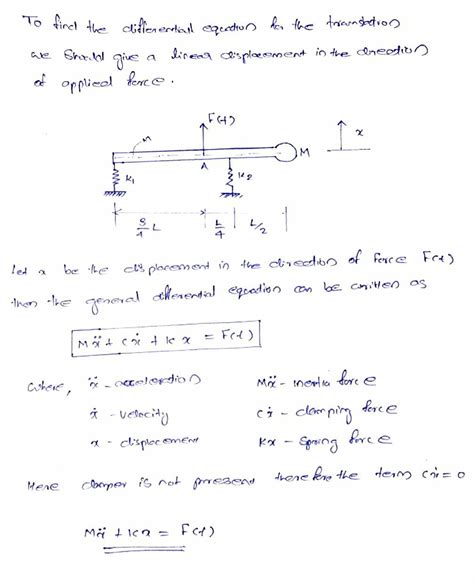 To find the differential equation for the translation
we should give a linear displacement in the direction
of applied force.
F(t)
m
M
x
A
K1
K2
3/4 L
L/4
L/2
Let x be the displacement in the direction of force F(t)
then the general differential equation can be written as
Mẍ + Cẋ + Kx = F(t)
Where, ẍ - acceleration
Mẍ - inertia force
ẋ - velocity
Cẋ - damping force
x - displacement
Kx - spring force
Here damper is not present therefore the term Cẋ = 0
Mẍ + Kx = F(t)